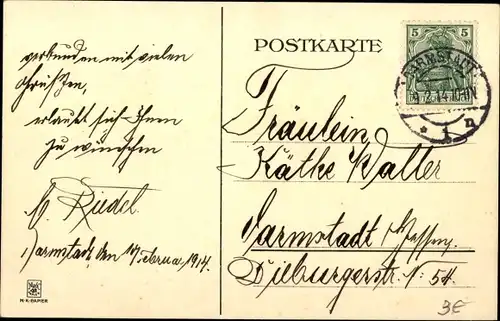 verbunden mit vielen
Grüßen,
erlaubt sich Ihnen
zu wünschen
Riedel.
Darmstadt, den Februar 1914.
POSTKARTE
5 5
DARMSTADT
2.14.10-11V
* 1 n
Fräulein
Käthe Walter
Darmstadt Hessen
Dieburgerstr. N: 54.
N.K. PAPIER
3€